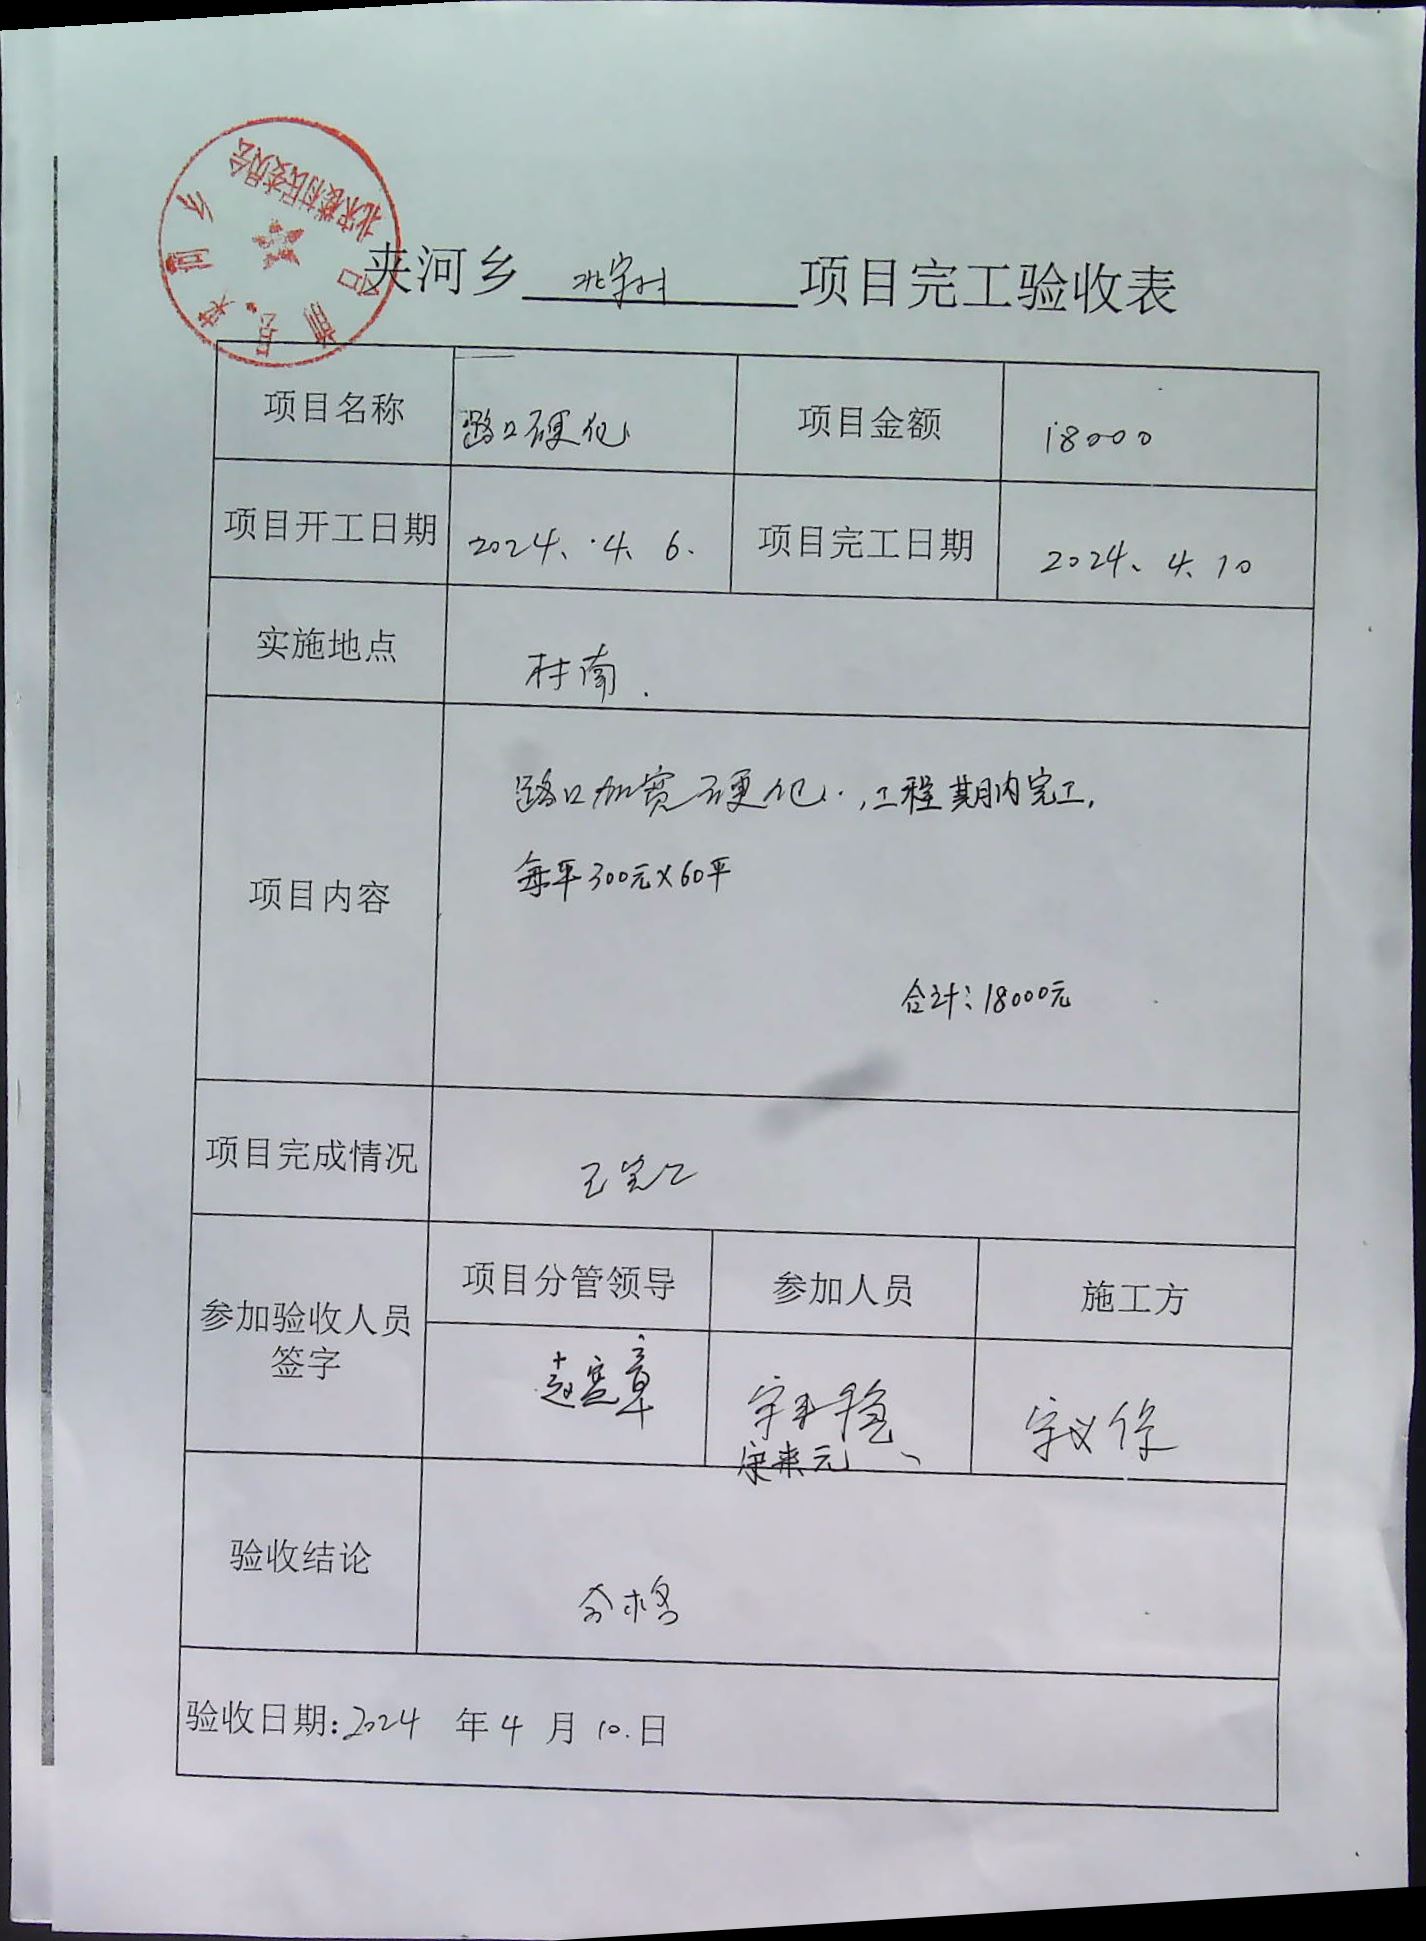 夹河乡 北宋村 项目完工验收表
项目名称 路口硬化 项目金额 18000
项目开工日期 2024、4、6. 项目完工日期 2024、4、10
实施地点 村南.
项目内容
路口加宽硬化.,工程期内完工,
每平300元×60平
合计:18000元
项目完成情况 已完工
参加验收人员
签字
项目分管领导 参加人员 施工方
赵宽章
宋来元
验收结论 合格
验收日期:2024 年 4 月 10.日